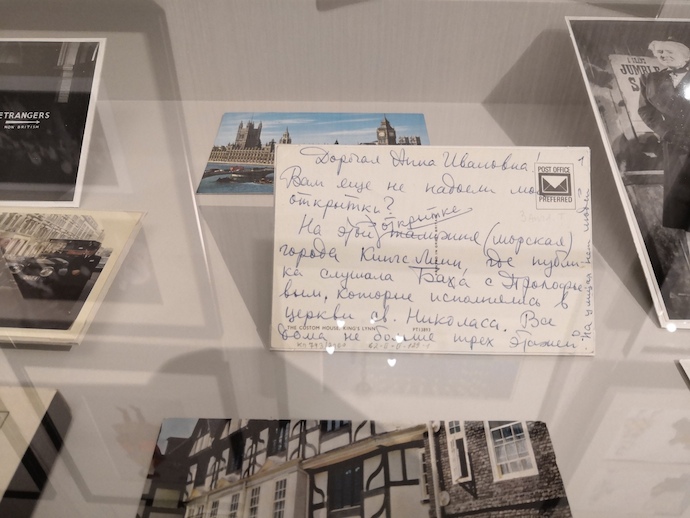 ETRANGERS
NON BRITISH
I JUMBLE
Дорогая Анна Ивановна!
Вам еще не надоели мои
открытки?
На этой открытке таможня (морская)
города Кингс Линн, где публи-
ка слушала Баха с Прокофье-
вым, которые исполнялись в
церкви св. Николаса. Все
дома не больше трех этажей.
На улицах нет людей
POST OFFICE
PREFERRED
THE CUSTOM HOUSE, KING'S LYNN